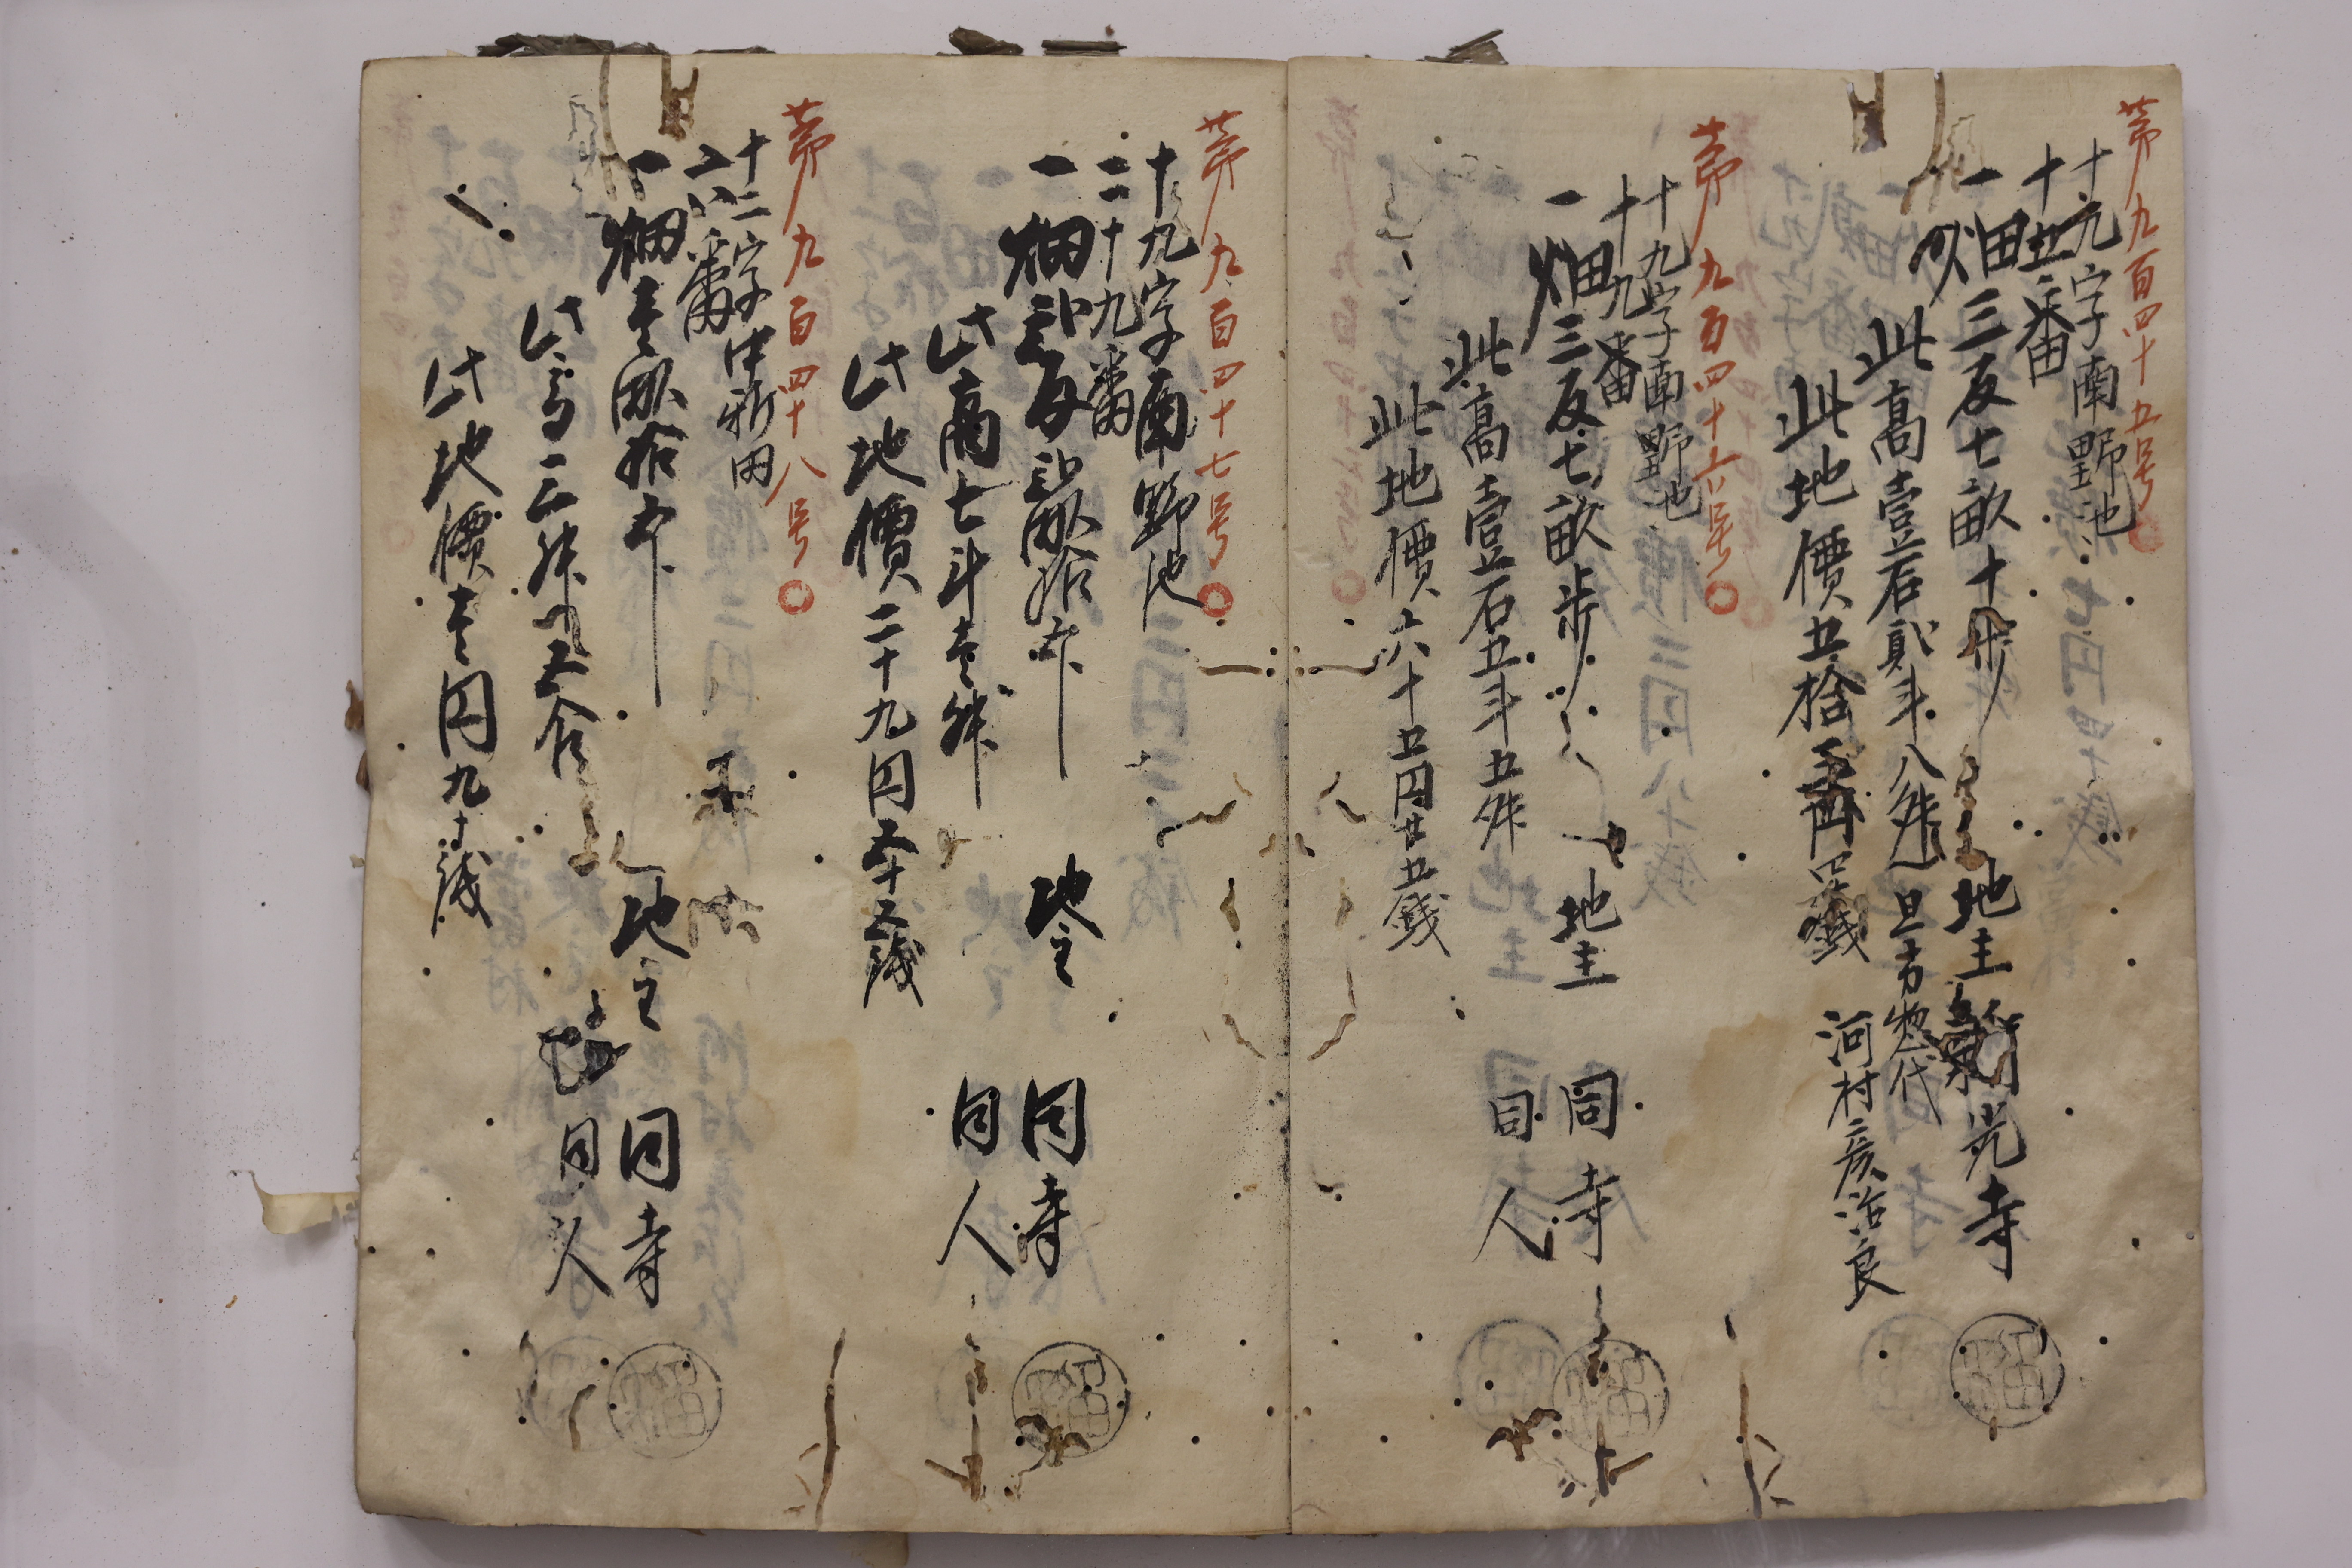 第九百四十五号
十九字南野池
十五番
一畑三反七畝十歩 地主 光寺
此高壹石貳斗八舛 旦方惣代
此地價五拾 円 銭 河村彦治良
第九百四十六号
十九字南野池
十九番
一畑三反七畝歩 地主 同寺
此高壹石五斗五舛 同人
此地價六十五円廿五銭
第九百四十七号
十九字南野池
二十九番
一畑弐反弐畝拾歩 地主 同寺
此高七斗壱舛 同人
此地價二十九円五十五銭
第九百四十八号
十二字中新田
六番
一畑壱畝拾歩 地主 同寺
此高三舛五合 同人
此地價壱円九十銭